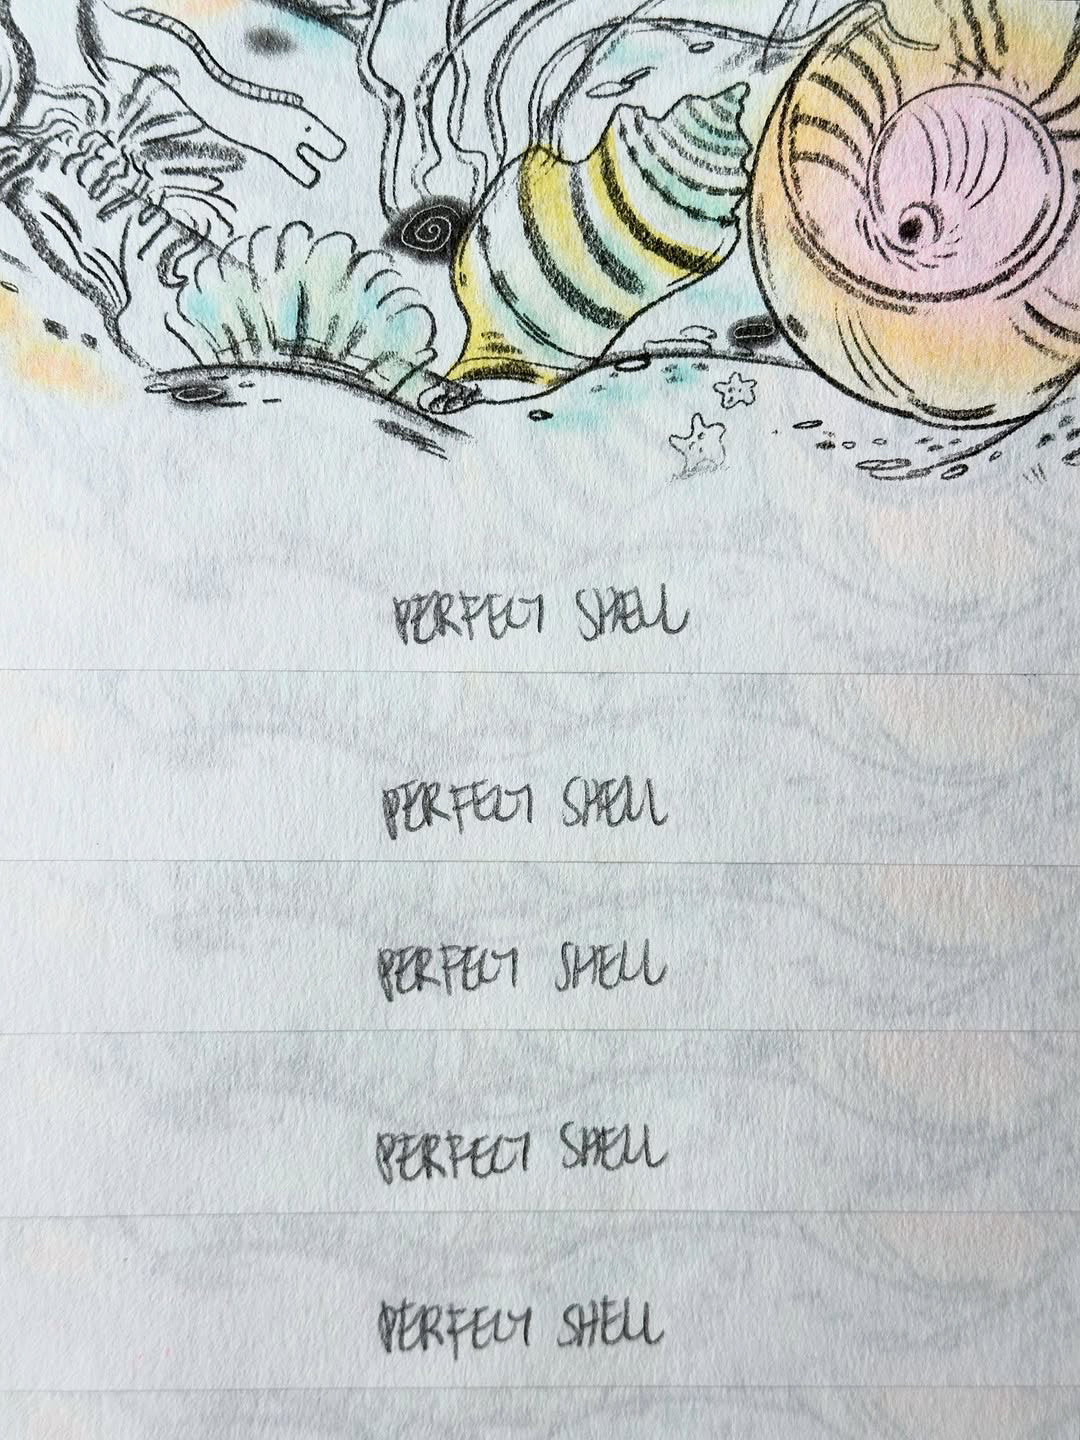 PERFECT SHELL
PERFECT SHELL
PERFECT SHELL
PERFECT SHELL
PERFECT SHELL